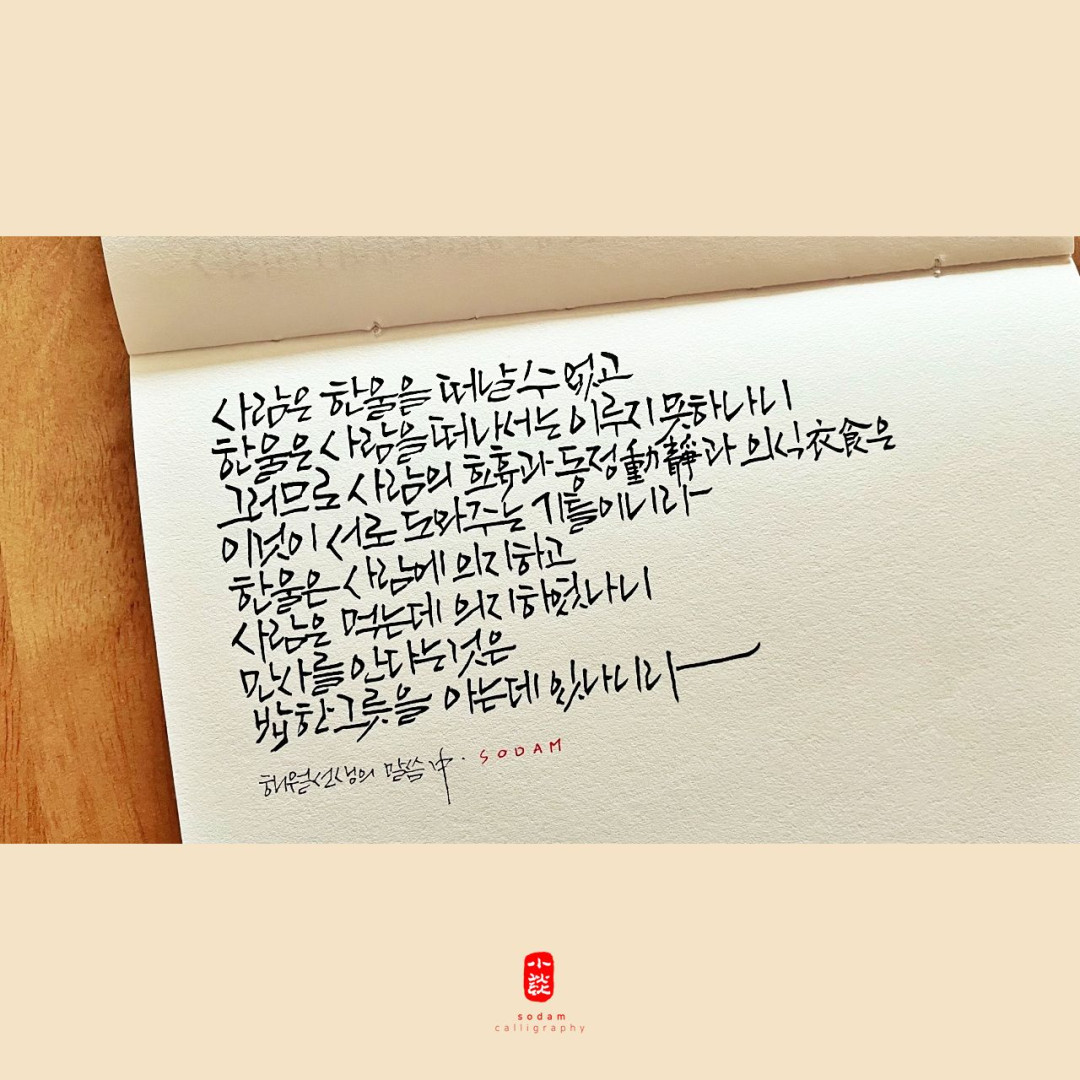 사람은 한울을 떠날 수 없고
한울은 사람을 떠나서는 이루지 못하나니
그러므로 사람의 호흡과 동정動靜과 의식衣食은
이것이 서로 도와주는 기틀이니라
한울은 사람에 의지하고
사람은 먹는데 의지하였나니
만사를 안다는것은
밥한그릇을 아는데 있나니라
해월선생의 말씀 中. SODAM
小談
sodam
calligraphy